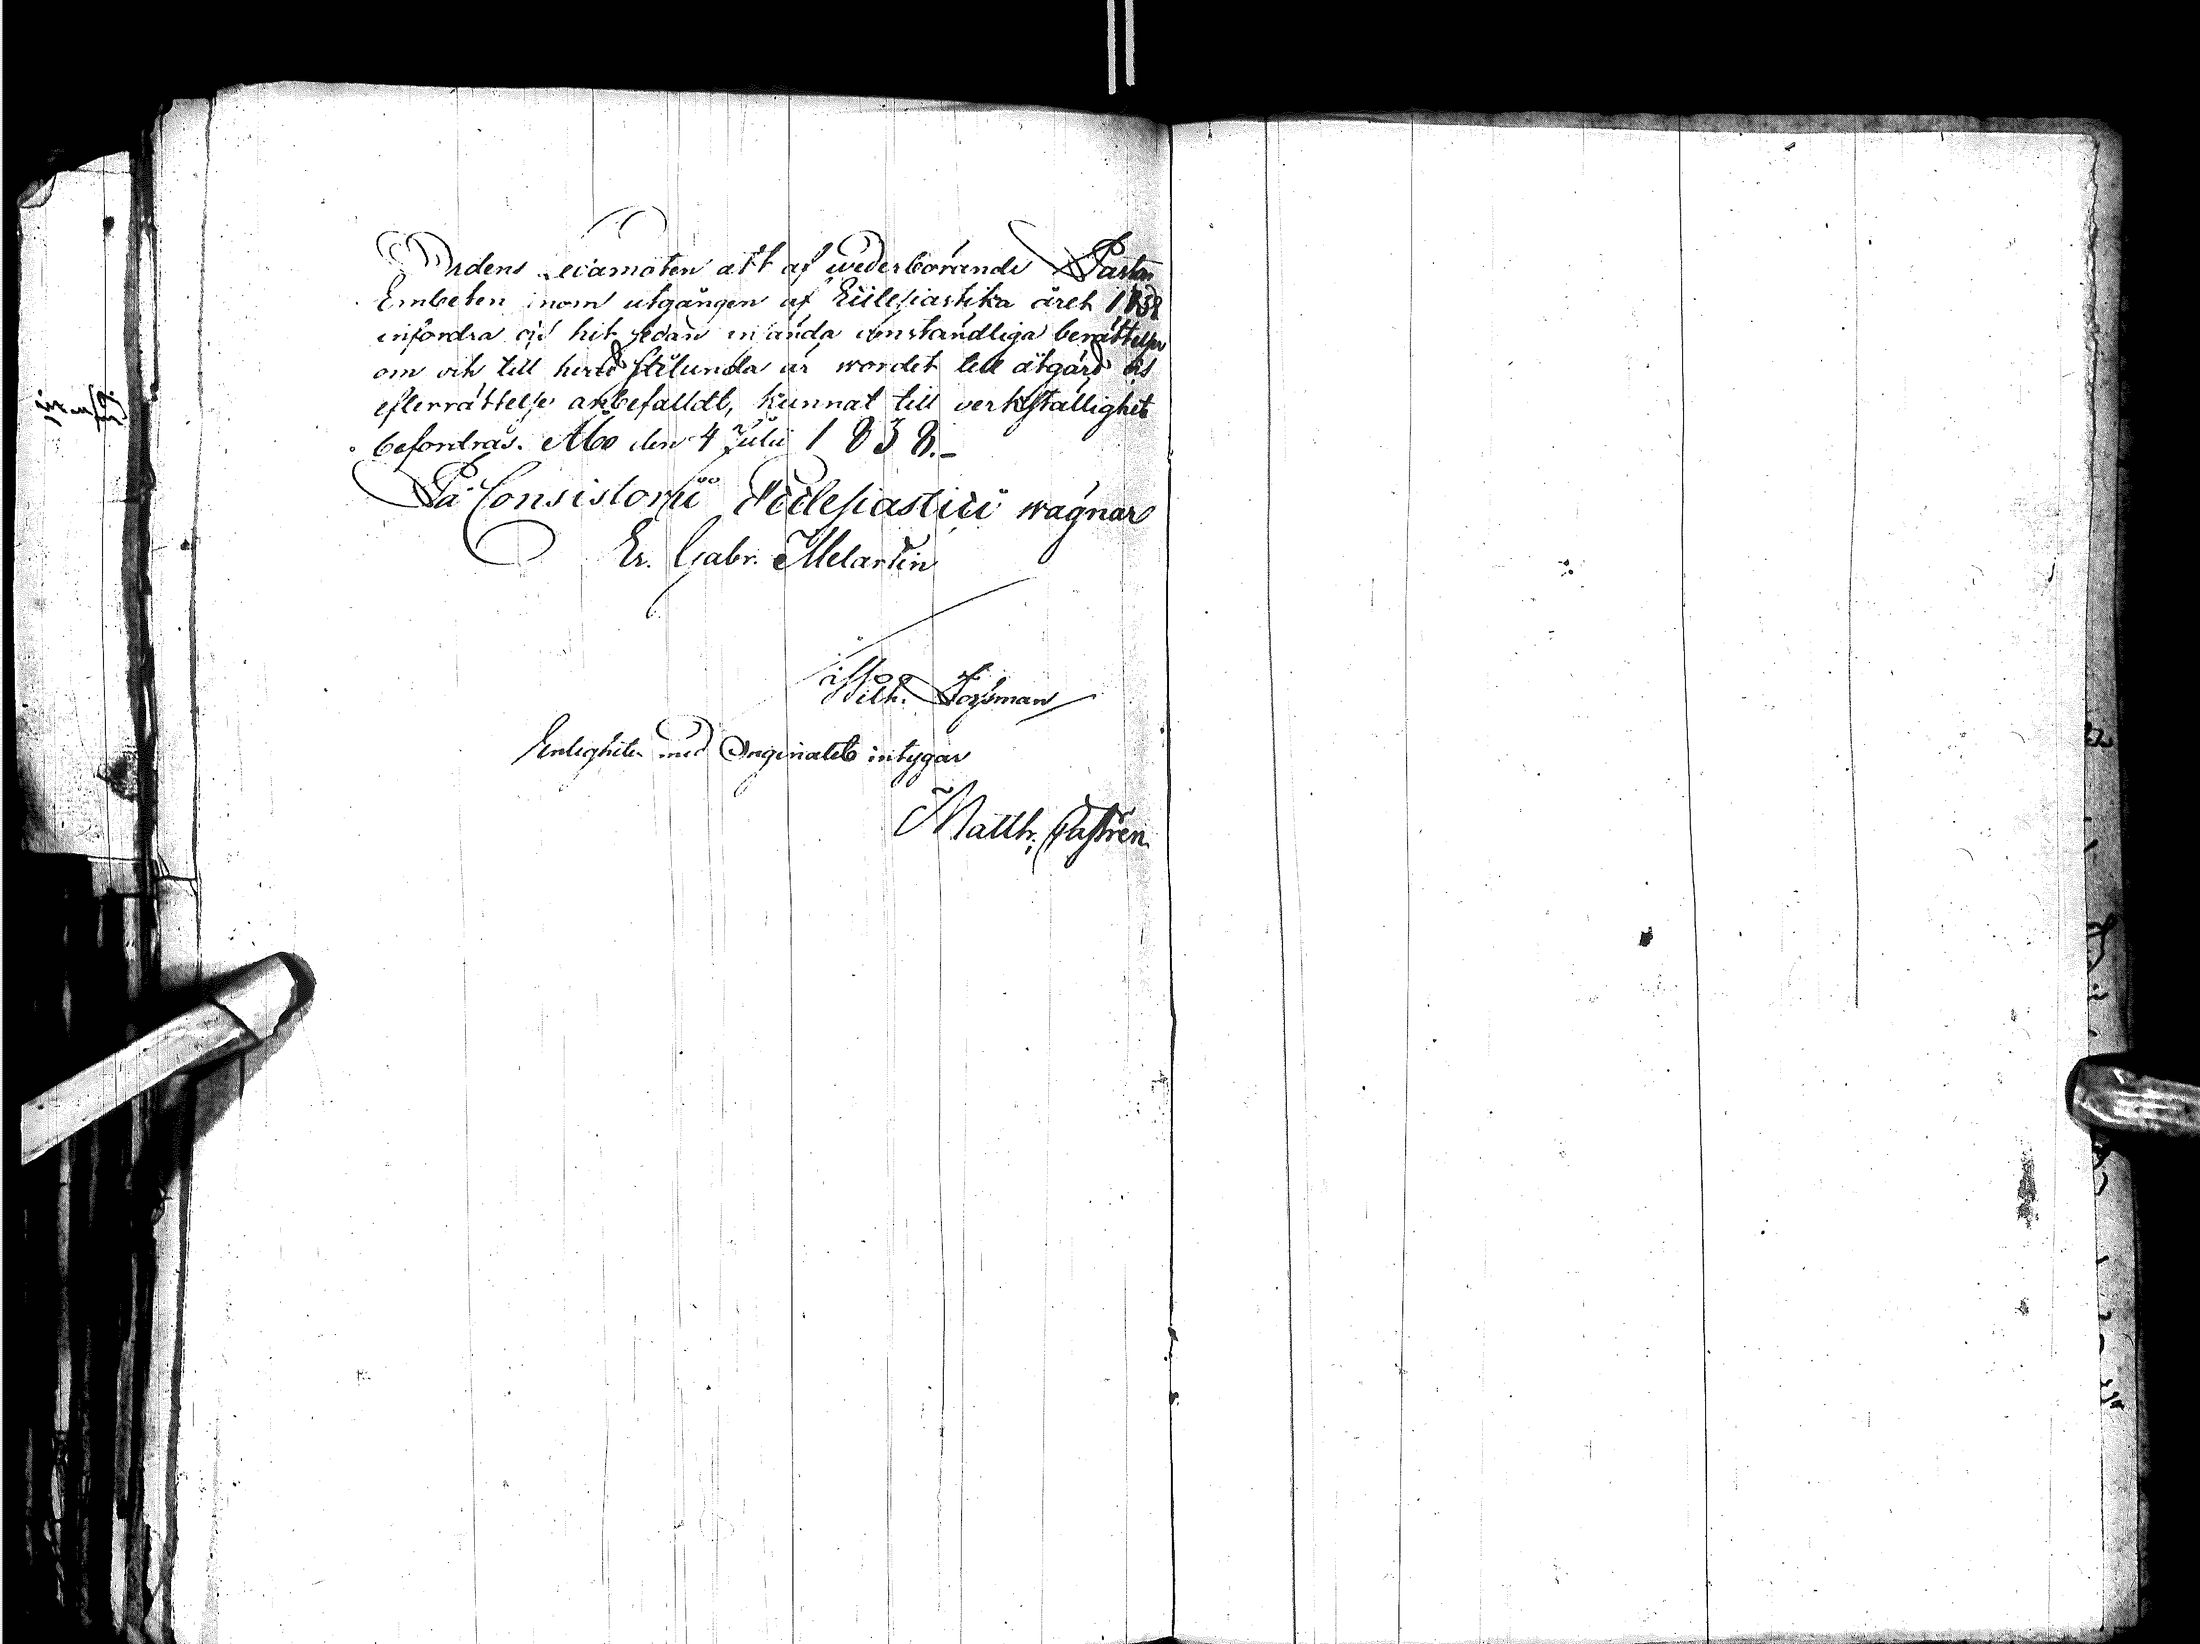 att af wederbörande Pastors
Embeten inom utgången af Ecclesiastika året 1838
infordra och hit sedan insända omständliga berättelser
om och till hwad är wordet till åtgärd och
efterrättelse anbefalldt, kunnat till verkställighet
befordras. Åbo den 4 Julii 1838.
På Consistorii Ecclesiastici wägnar
Er. Gabr. Melartin
Wilh. Forssman
Enligheten med Originalet intygar
Matth. Castrén